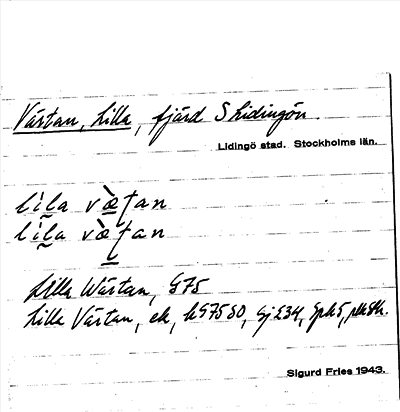 Värtan, Lilla, fjärd S Lidingön.
Lidingö stad. Stockholms län.
lìla væ̀ʈan
lìla væ̀ʈan
Lilla Wärtan, G75
Lilla Värtan, ek, hG75SO, Sj234,
Sigurd Fries 1943.